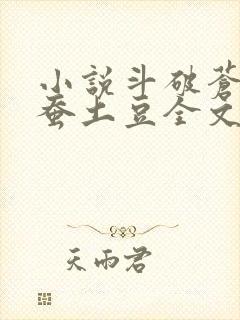 小說斗破蒼
蚕土豆全文
天雨君